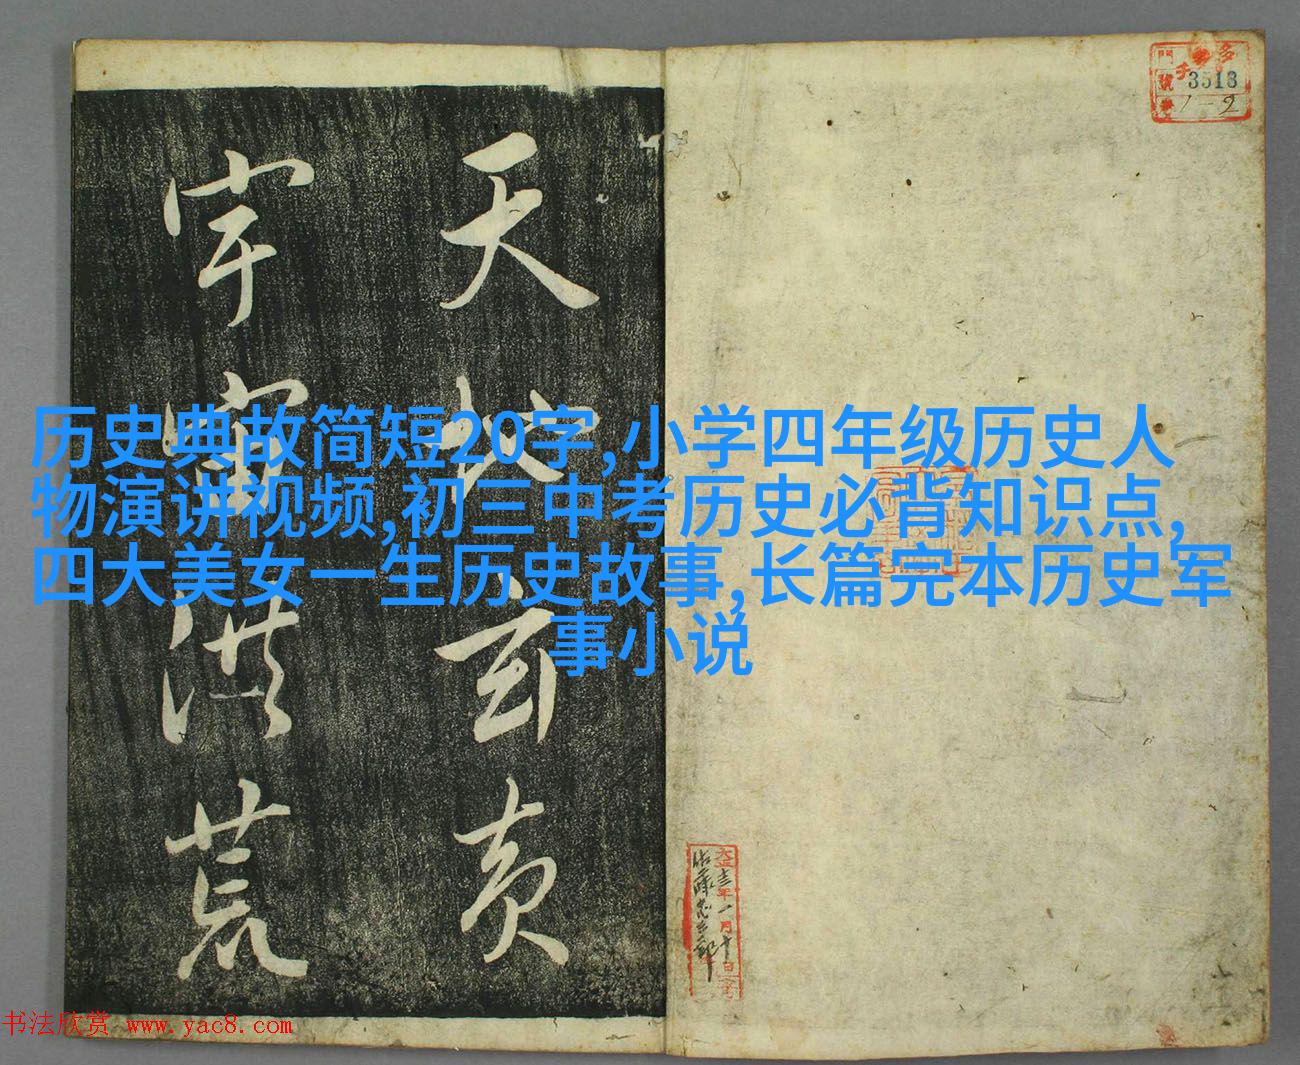 天地玄黄
宇宙洪荒
3513
1-2
历史典故简短20字,小学四年级历史人
物演讲视频,初三中考历史必背知识点,
四大美女一生历史故事,长篇完本历史军
事小说
大正三年一月十日
书法欣赏 www.yac8.com